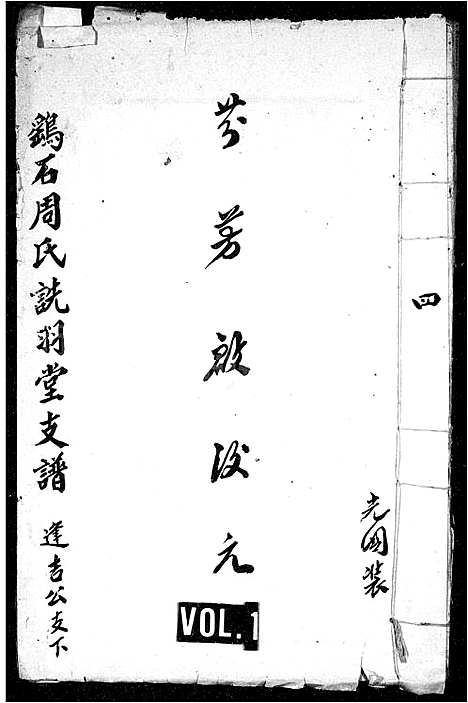 四
光國裝
芬芳啟後元
VOL. 1
鷄石周氏詵羽堂支譜
逢吉公支下